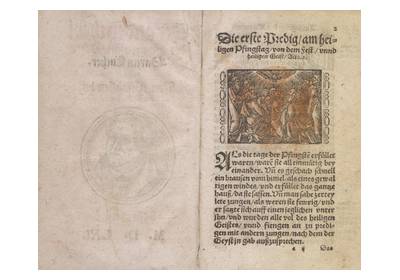 Die erste Predig / am hei-
ligen Pfingstag / von dem Fest / vnnd
heiligen Geist / Acto.
ALs die tage der Pfingstē erfüllet
waren / warē sie all einmütig bey
einander. Vñ es geschach schnell
ein brausen vom himel / als eines gewal
tigen windes / vnd erfüllet das gantze
hauß / da sie sassen. Vñ man sahe zerrey
lete zungen / als weren sie fewrig / vnd
er satzte sich auff einen jeglichen vnter
jhn / vnd wurden alle vol des heiligen
Geistes / vnnd fiengen an zu predi-
gen mit andern zungen / nach dem der
Geyst jn gab außzusprechen.
Das